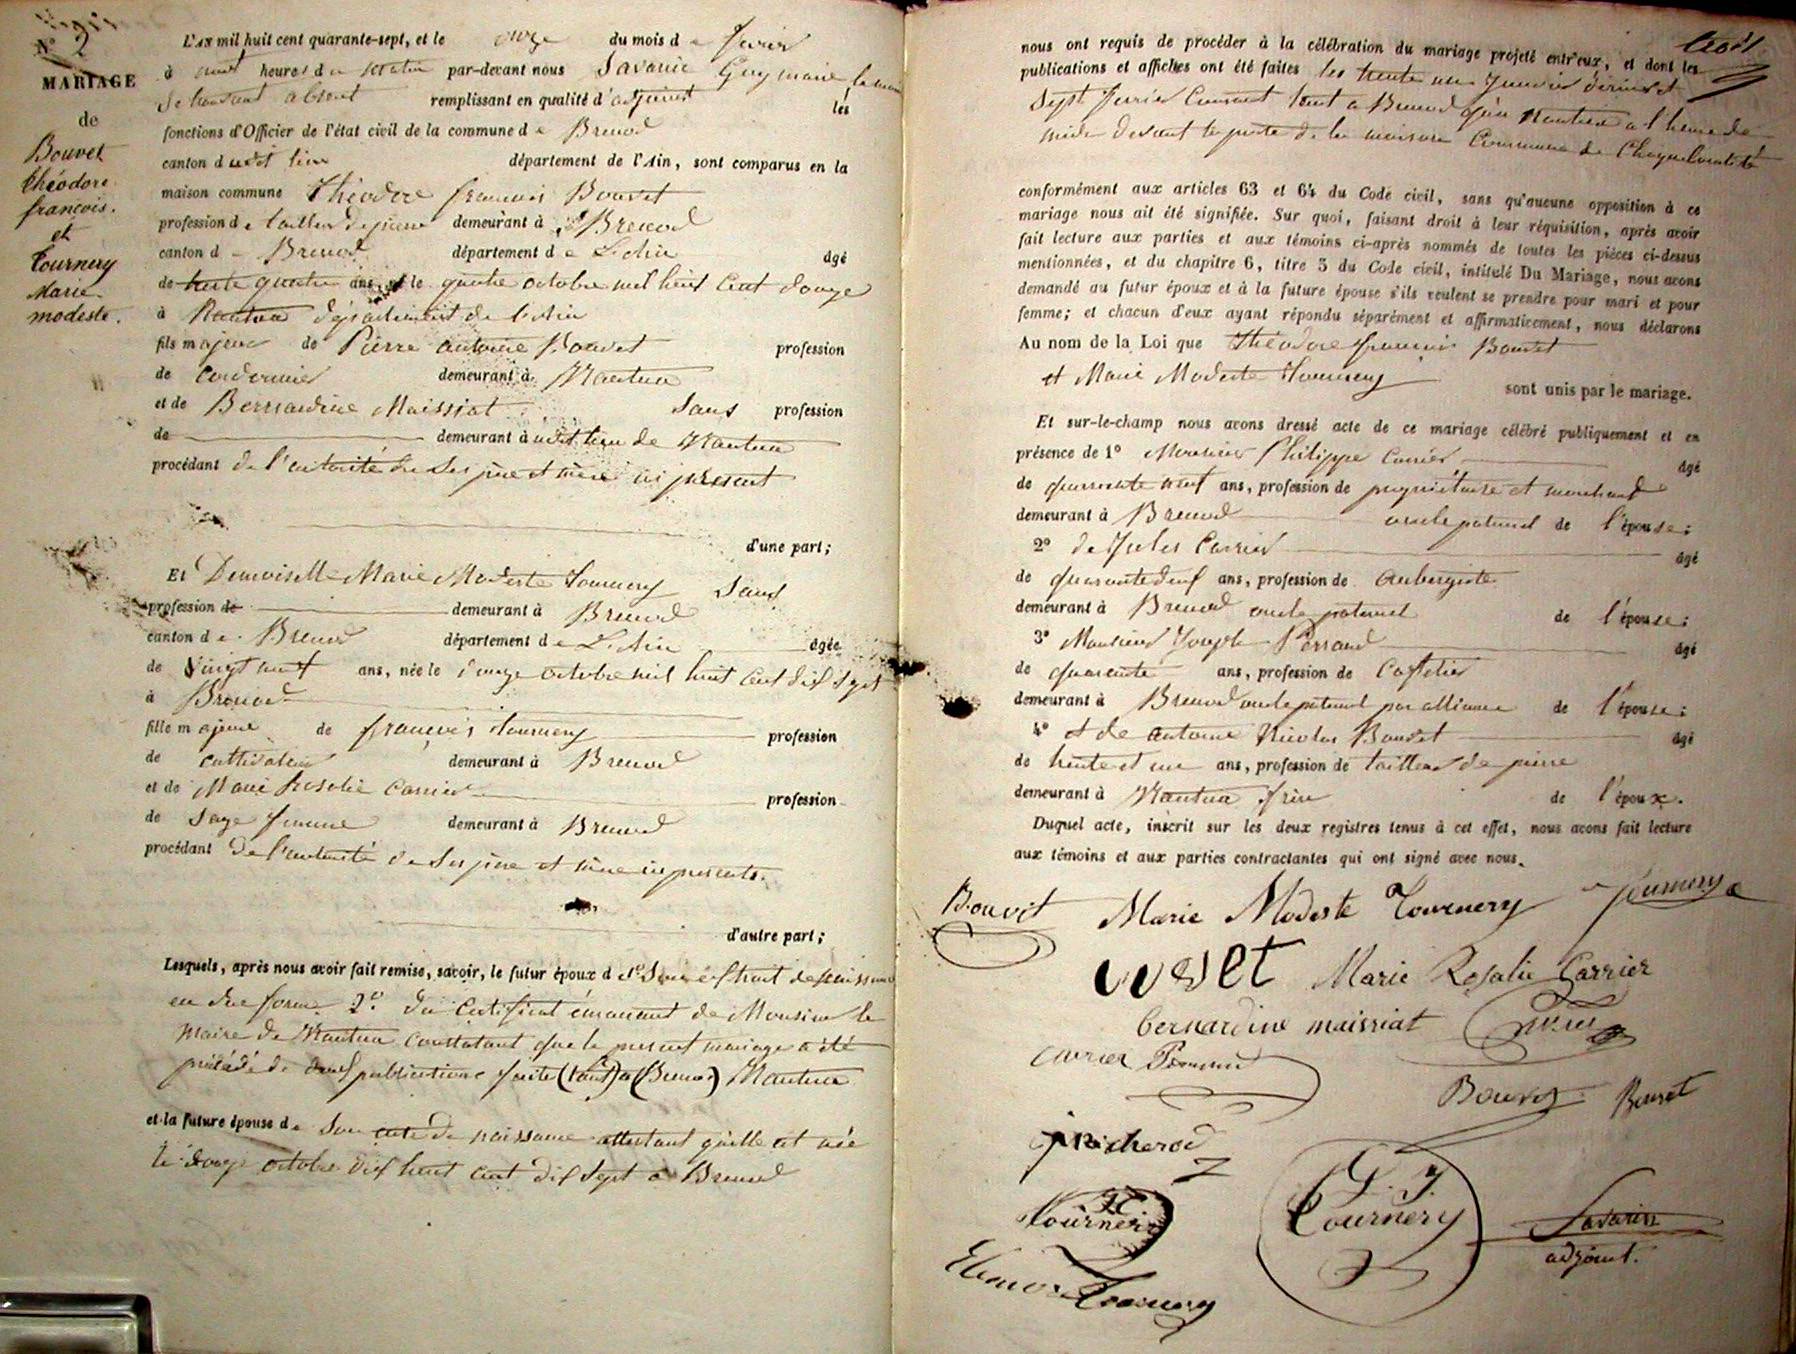 N° 2
MARIAGE
de
Bouvet
théodore
françois.
et
Tournery
Marie
modeste.
L'AN mil huit cent quarante-sept, et le onze du mois de fevrier
à neuf heures du matin par-devant nous Savarin Guy maire le maire
se trouvant absent remplissant en qualité d'adjoint les
fonctions d'Officier de l'état civil de la commune de Brenod
canton dudit lieu département de l'Ain, sont comparus en la
maison commune théodore françois Bouvet
profession de tailleur de pierre demeurant à Brenod
canton de Brenod département de L'Ain âgé
de trente quatre ans, né le quatre octobre mil huit cent douze
à Nantua département de l'Ain
fils majeur de Pierre antoine Bouvet profession
de cordonnier demeurant à Nantua
et de Bernardine Maissiat Sans profession
de demeurant à audit lieu de Nantua
procédant de l'autorité de Ses père et mère ici présent
d'une part;
Et Demoiselle Marie Modeste Tournery Sans
profession de demeurant à Brenod
canton de Brenod département de L'Ain âgée
de vingt neuf ans, née le douze octobre mil huit cent dix sept
à Brenod
fille majeure de françois Tournery profession
de cultivateur demeurant à Brenod
et de Marie Rosalie Carrier profession
de Sage femme demeurant à Brenod
procédant de l'autorité de Ses père et mère ici présents.
d'autre part;
Lesquels, après nous avoir fait remise, savoir, le futur époux d 1° Son extrait de naissance
en due forme 2° du certificat émanant de Monsieur le
Maire de Nantua constatant que le present mariage a été
précédé de deux publications faite (tant) a (Brenod) Nantua
et la future épouse de Son acte de naissance attestant qu'elle est née
le douze octobre dix huit cent dix sept a Brenod
trois
nous ont requis de procéder à la célébration du mariage projeté entr'eux, et dont les
publications et affiches ont été faites les trente un Janvier dernier et
sept fevrier Courant tant a Brenod qu'a Nantua a l'heure de
midi devant la porte de la maison Commune de chaque localité
conformément aux articles 63 et 64 du Code civil, sans qu'aucune opposition à ce
mariage nous ait été signifiée. Sur quoi, faisant droit à leur réquisition, après avoir
fait lecture aux parties et aux témoins ci-après nommés de toutes les pièces ci-dessus
mentionnées, et du chapitre 6, titre 5 du Code civil, intitulé Du Mariage, nous avons
demandé au futur époux et à la future épouse s'ils veulent se prendre pour mari et pour
femme; et chacun d'eux ayant répondu séparément et affirmativement, nous déclarons
Au nom de la Loi que théodore françois Bouvet
et Marie Modeste Tournery sont unis par le mariage.
Et sur-le-champ nous avons dressé acte de ce mariage célébré publiquement et en
présence de 1° Monsieur Philippe Carrier âgé
de quarante neuf ans, profession de propriétaire et marchand
demeurant à Brenod oncle paternel de l'épouse;
2° de Jules Carrier âgé
de quarante deux ans, profession de Aubergiste
demeurant à Brenod oncle paternel de l'épouse;
3° Monsieur Joseph Perraud âgé
de quarante ans, profession de Caffetier
demeurant à Brenod oncle paternel par alliance de l'épouse;
4° et de antoine Nicolas Bouvet âgé
de trente et un ans, profession de tailleur de pierre
demeurant à Nantua frère de l'époux.
Duquel acte, inscrit sur les deux registres tenus à cet effet, nous avons fait lecture
aux témoins et aux parties contractantes qui ont signé avec nous.
Bouvet Marie Modeste Tournery Tournery
Marie Rosalie Carrier
bernardine maissiat
carrier Perraud
Bouvet Bouvet
Tournery
G. J.
Tournery
Savarin
adjoint.
Tournery